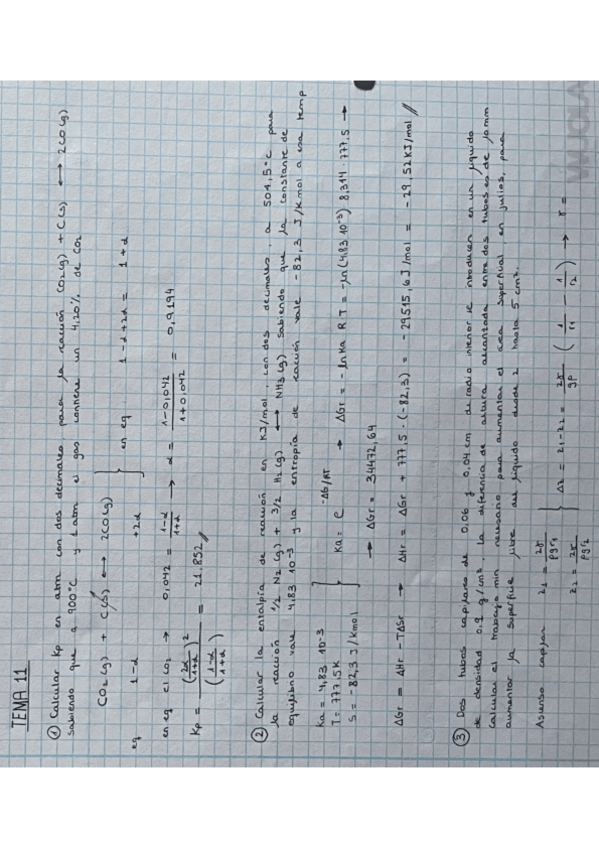 TEMA 11
① Calcular Kp en atm con dos decimales para la reacción CO2(g) + C(s) ⟷ 2CO(g)
sabiendo que a 900°C y 1 atm el gas contiene un 4,20% de CO2
CO2(g) + C(s) ⟷ 2CO(g)
eq 1-α +2α } en eq 1-α+2α = 1+α
en eq el CO2 → 0,042 = (1-α)/(1+α) → α = (1-0,042)/(1+0,042) = 0,9194
Kp = (2α/(1+α))² / ((1-α)/(1+α)) = 21.852 //
② Calcular la entalpía de reacción en KJ/mol, con dos decimales, a 504,5°C para
la reacción 1/2 N2(g) + 3/2 H2(g) ⟷ NH3(g). Sabiendo que la constante de
equilibrio vale 4.83 10⁻³ y la entropía de reacción vale -82,3 J/Kmol a esa temp
Ka = 4,83 10⁻³
T = 777,5K
S = -82,3 J/Kmol
} Ka = e^(-ΔG/RT) → ΔGr = -lnKa R.T = -ln(4,83 10⁻³) 8,314 · 777,5 →
→ ΔGr = 34472,64
ΔGr = ΔHr - TΔSr → ΔHr = ΔGr + 777,5 · (-82,3) = -29515,6J/mol = -29,52KJ/mol //
③ Dos tubos capilares de 0,06 y 0,04 cm de radio interior se introducen en un líquido
de densidad 0.9 g/cm³. La diferencia de altura alcanzada entre dos tubos es de 10mm
Calcular el trabajo min necesario para aumentar el área superficial en julios, para
aumentar la superficie libre del líquido desde 2 hasta 5 cm².
Ascenso capilar z1 = 2γ/ρgr1
z2 = 2γ/ρgr2
} Δz = z1-z2 = 2γ/gρ (1/r1 - 1/r2) → γ =
WUOLAH